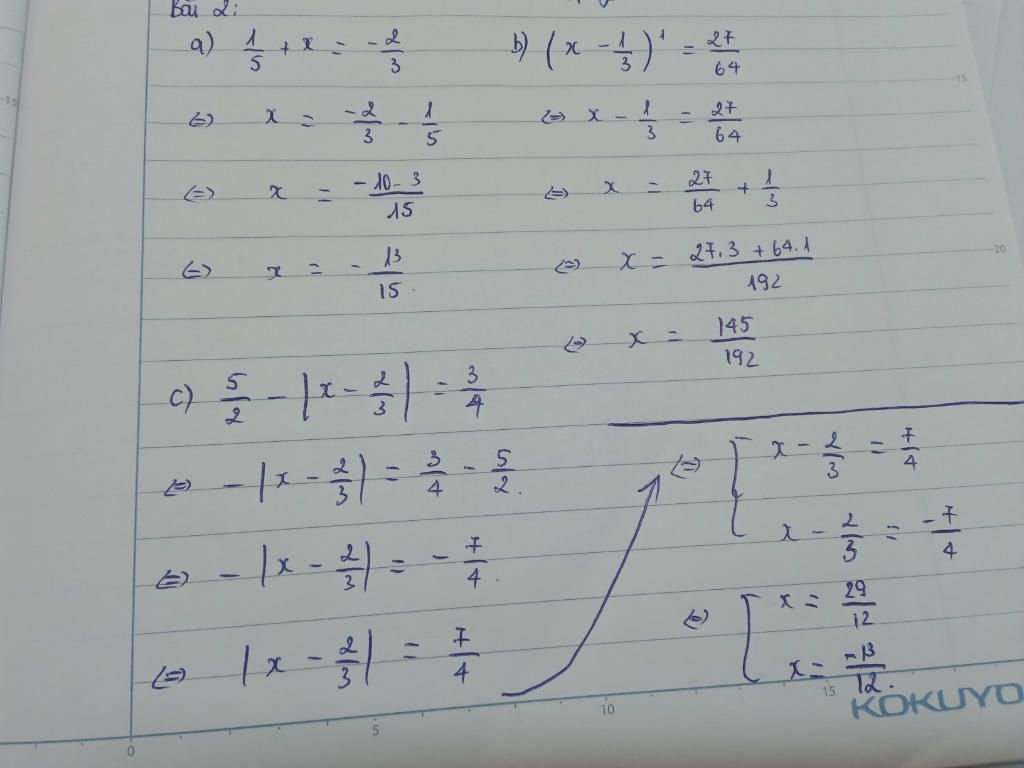 Bài 2:
a) 1/5 + x = -2/3
⇔ x = -2/3 - 1/5
⇔ x = (-10-3)/15
⇔ x = -13/15.
b) (x - 1/3)¹ = 27/64
⇔ x - 1/3 = 27/64
⇔ x = 27/64 + 1/3
⇔ x = (27.3 + 64.1)/192
⇔ x = 145/192
c) 5/2 - |x - 2/3| = 3/4
⇔ -|x - 2/3| = 3/4 - 5/2.
⇔ -|x - 2/3| = -7/4.
⇔ |x - 2/3| = 7/4
⇔ [ x - 2/3 = 7/4
x - 2/3 = -7/4
⇔ [ x = 29/12
x = -13/12.
15
20
0 5 10 15
KOKUYO